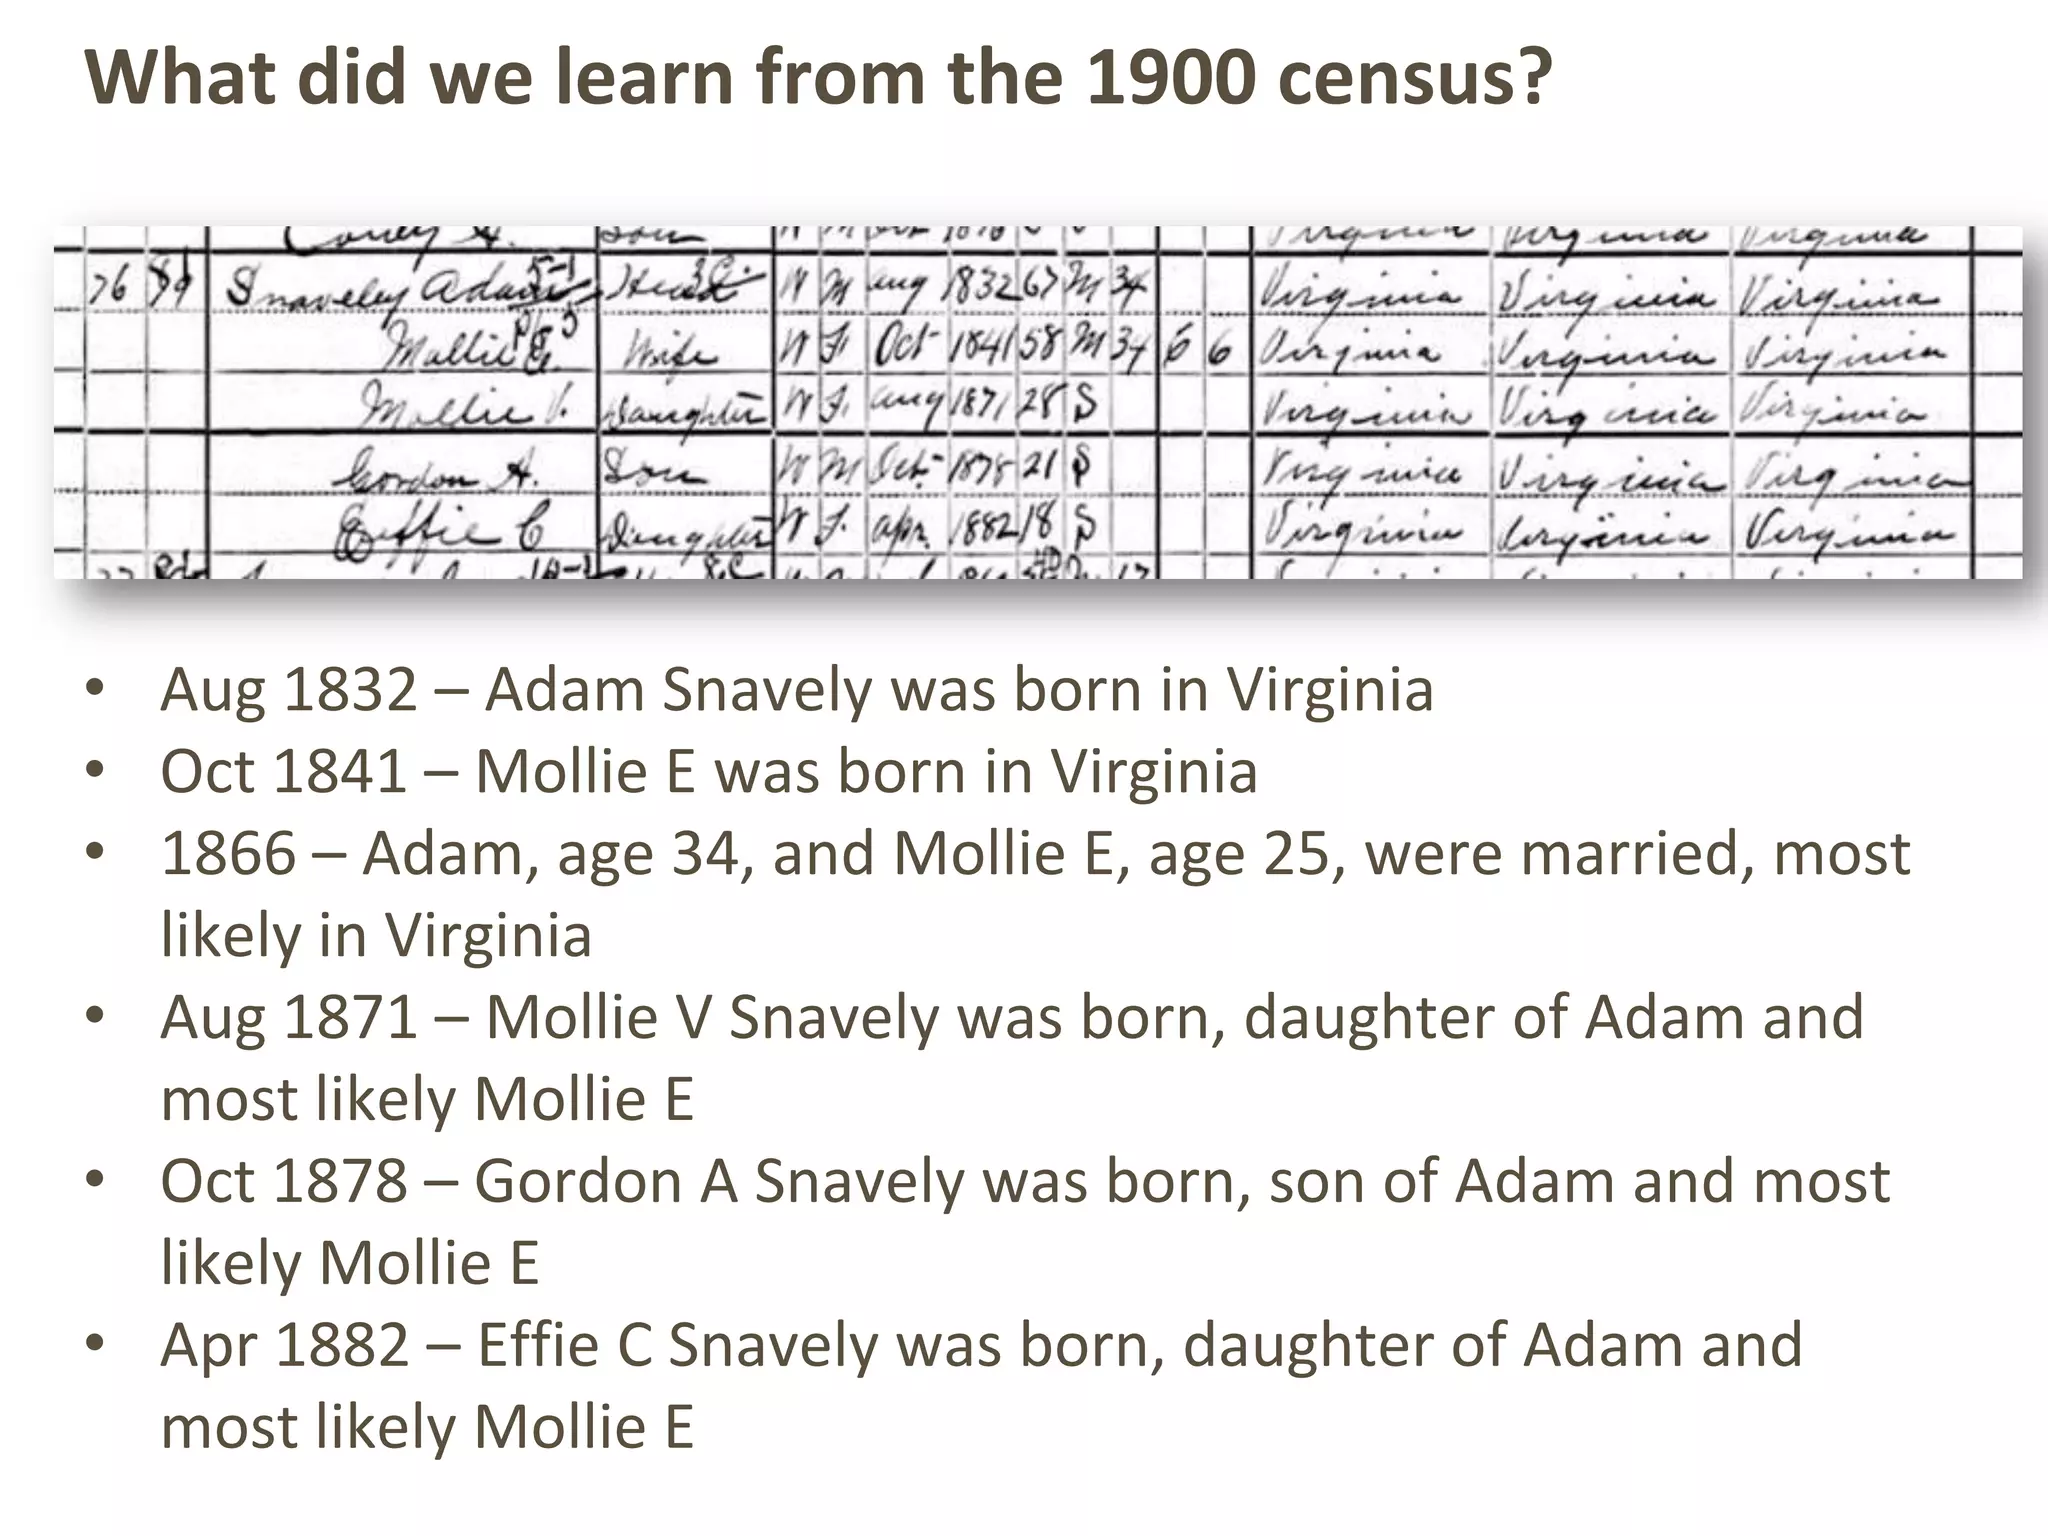 What did we learn from the 1900 census?
Son W M 1878 Virginia Virginia Virginia
76 Snaveley Adam Head W M Aug 1832 67 M 34 Virginia Virginia Virginia
Mollie E. Wife W F. Oct 1841 58 M 34 6 6 Virginia Virginia Virginia
Mollie V. Daughter W F. Aug 1871 28 S Virginia Virginia Virginia
Gordon A. Son W M Oct. 1878 21 S Virginia Virginia Virginia
Effie C Daughter W F. Apr. 1882 18 S Virginia Virginia Virginia
• Aug 1832 – Adam Snavely was born in Virginia
• Oct 1841 – Mollie E was born in Virginia
• 1866 – Adam, age 34, and Mollie E, age 25, were married, most
likely in Virginia
• Aug 1871 – Mollie V Snavely was born, daughter of Adam and
most likely Mollie E
• Oct 1878 – Gordon A Snavely was born, son of Adam and most
likely Mollie E
• Apr 1882 – Effie C Snavely was born, daughter of Adam and
most likely Mollie E